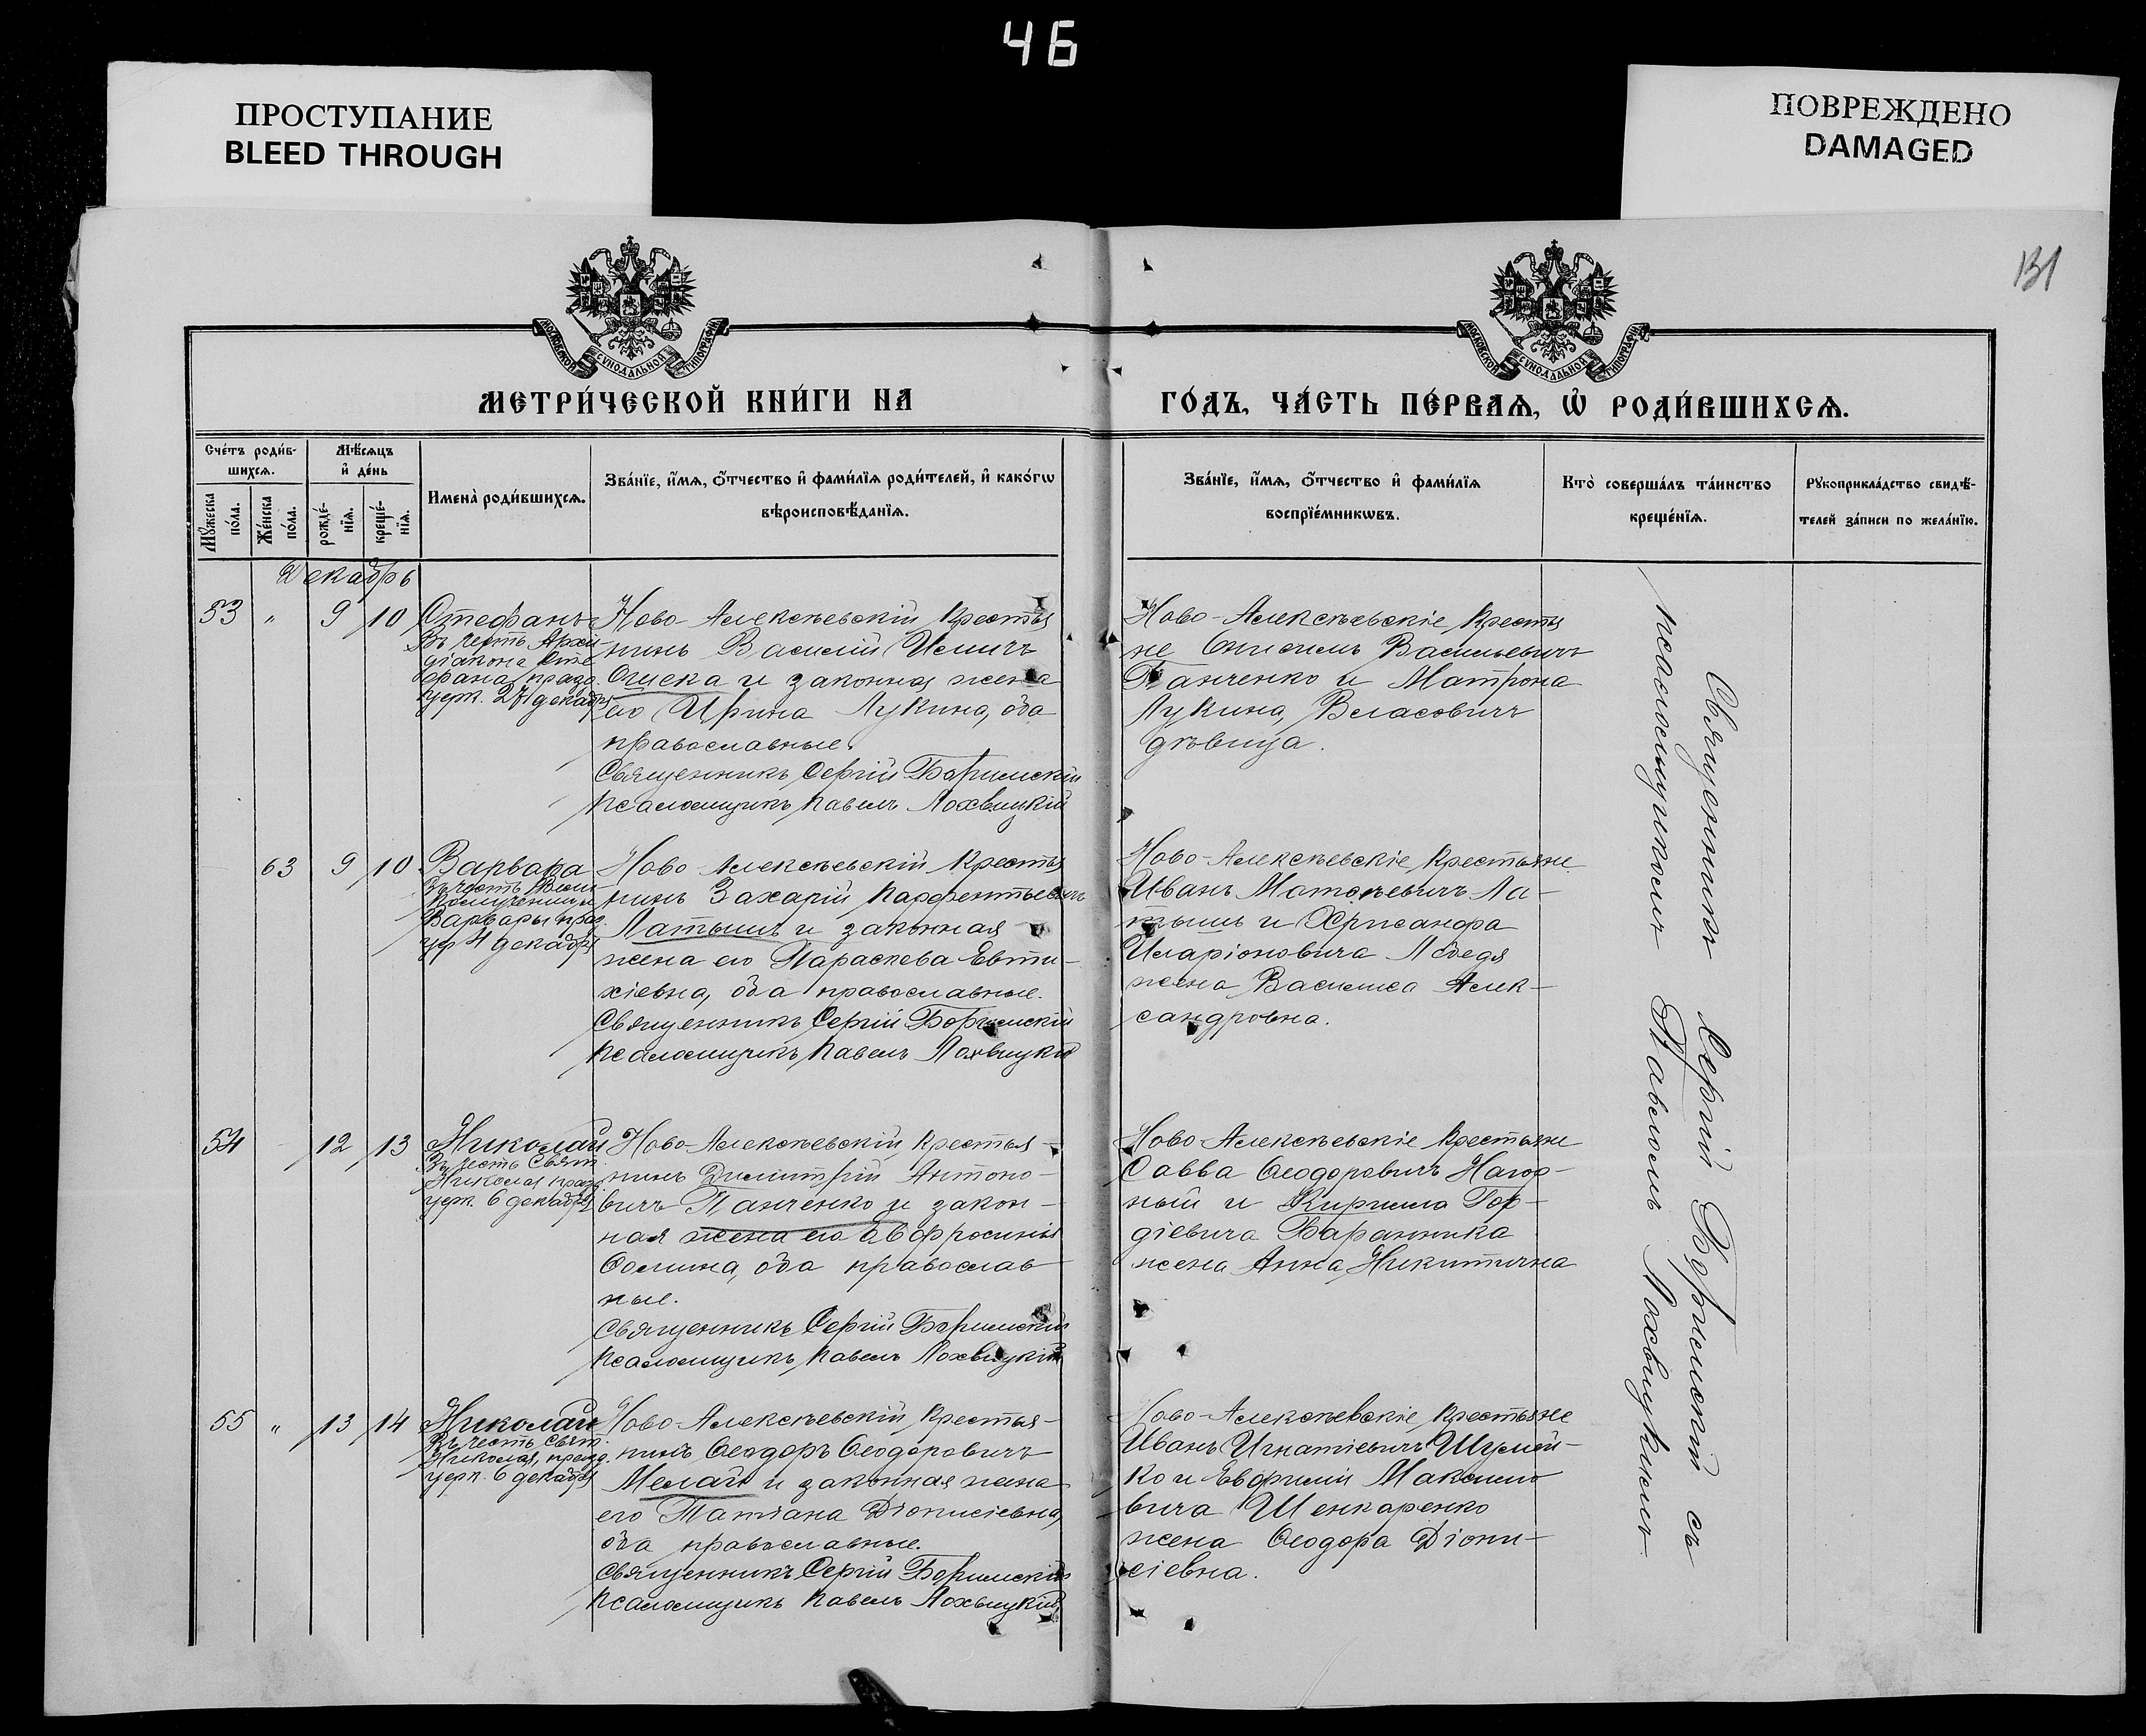 46
ПРОСТУПАНИЕ
BLEED THROUGH
ПОВРЕЖДЕНО
DAMAGED
131
МОСКОВСКОЙ СУНОДАЛЬНОЙ ТИПОГРАФІИ
МОСКОВСКОЙ СУНОДАЛЬНОЙ ТИПОГРАФІИ
МЕТРИ́ЧЕСКОЙ КНИ́ГИ НА
ГО́ДЪ, ЧА́СТЬ ПЕ́РВАѦ, Ѡ҆ РОДИ́ВШИХСѦ.
Сче́тъ роди́в-
шихсѧ.
Мѣ́сѧцъ
и҆ де́нь
Мꙋ́жеска
по́ла.
Же́нска
по́ла.
рожде́-
нїѧ.
креще́-
нїѧ.
Имена̀ роди́вшихсѧ.
Зва́нїе, и҆́мѧ, ѻ҆́тчество и҆ фами́лїѧ роди́телей, и҆ како́гѡ
вѣроисповѣ́данїѧ.
Зва́нїе, и҆́мѧ, ѻ҆́тчество и҆ фами́лїѧ
воспрїе́мникѡвъ.
Кто̀ соверша́лъ та́инство
креще́нїѧ.
Рꙋкоприкла́дство свидѣ́-
телей за́писи по жела́нїю.
Декабрь
53 " 9 10 Стефанъ
Въ честь Архи-
діакона Сте
фана, празд.
церк. 27 декабря
Ново-Алексѣевскій крестья
нинъ Василій
и законная жена
его Ирина Лукина, оба
православные.
Священникъ Сергій Боримскій
Псаломщикъ Павелъ Лохвицкій
Ново-Алексѣевскіе крестья
не Онисимъ Васильевичъ
Панченко и Матрона
Лукина, Власовичъ
дѣвица.
63 9 10 Варвара
Въ честь Вели-
комученицы
Варвары празд.
цр 4 декабря
Ново-Алексѣевскій крестья
нинъ Захарій Парфентьевичъ
Латышъ и законная
жена его Параскева Евти-
хіевна, оба православные.
Священникъ Сергій Боримскій
Псаломщикъ Павелъ Лохвицкій
Ново-Алексѣевскіе крестьяне
Иванъ Матѳеевичъ Ла-
тышъ и Хрисанфа
Иларіоновича
жена Василиса Алек-
сандровна.
54 12 13 Николай
Въ честь Свят.
Николая празд.
церк. 6 декабря
Ново-Алексѣевскій крестья-
нинъ Димитрій Антоно-
вичъ Панченко и закон-
ная жена его Евфросинія
Ѳомина, оба православ
ные.
Священникъ Сергій Боримскій
Псаломщикъ Павелъ Лохвицкій
Ново-Алексѣевскіе крестьяне
Савва Ѳеодоровичъ Нагор-
ный и Кирилла Гор-
діевича Баранника
жена Анна Никитична
55 " 13 14 Николай
Въ честь Свят.
Николая, празд.
церк. 6 декабря
Ново-Алексѣевскій крестья-
нинъ Ѳеодоръ Ѳеодоровичъ
Мелай и законная жена
его Татіана Діонисіевна,
оба православные.
Священникъ Сергій Боримскій
Псаломщикъ Павелъ Лохвицкій
Ново-Алексѣевскіе крестьяне
Иванъ Игнатіевичъ Шумей-
ко и Евфимія Максимо
вича Шенкаренко
жена Ѳеодора Діони-
сіевна.
Священникъ Сергій Боримскій съ
псаломщикомъ Павломъ Лохвицкимъ